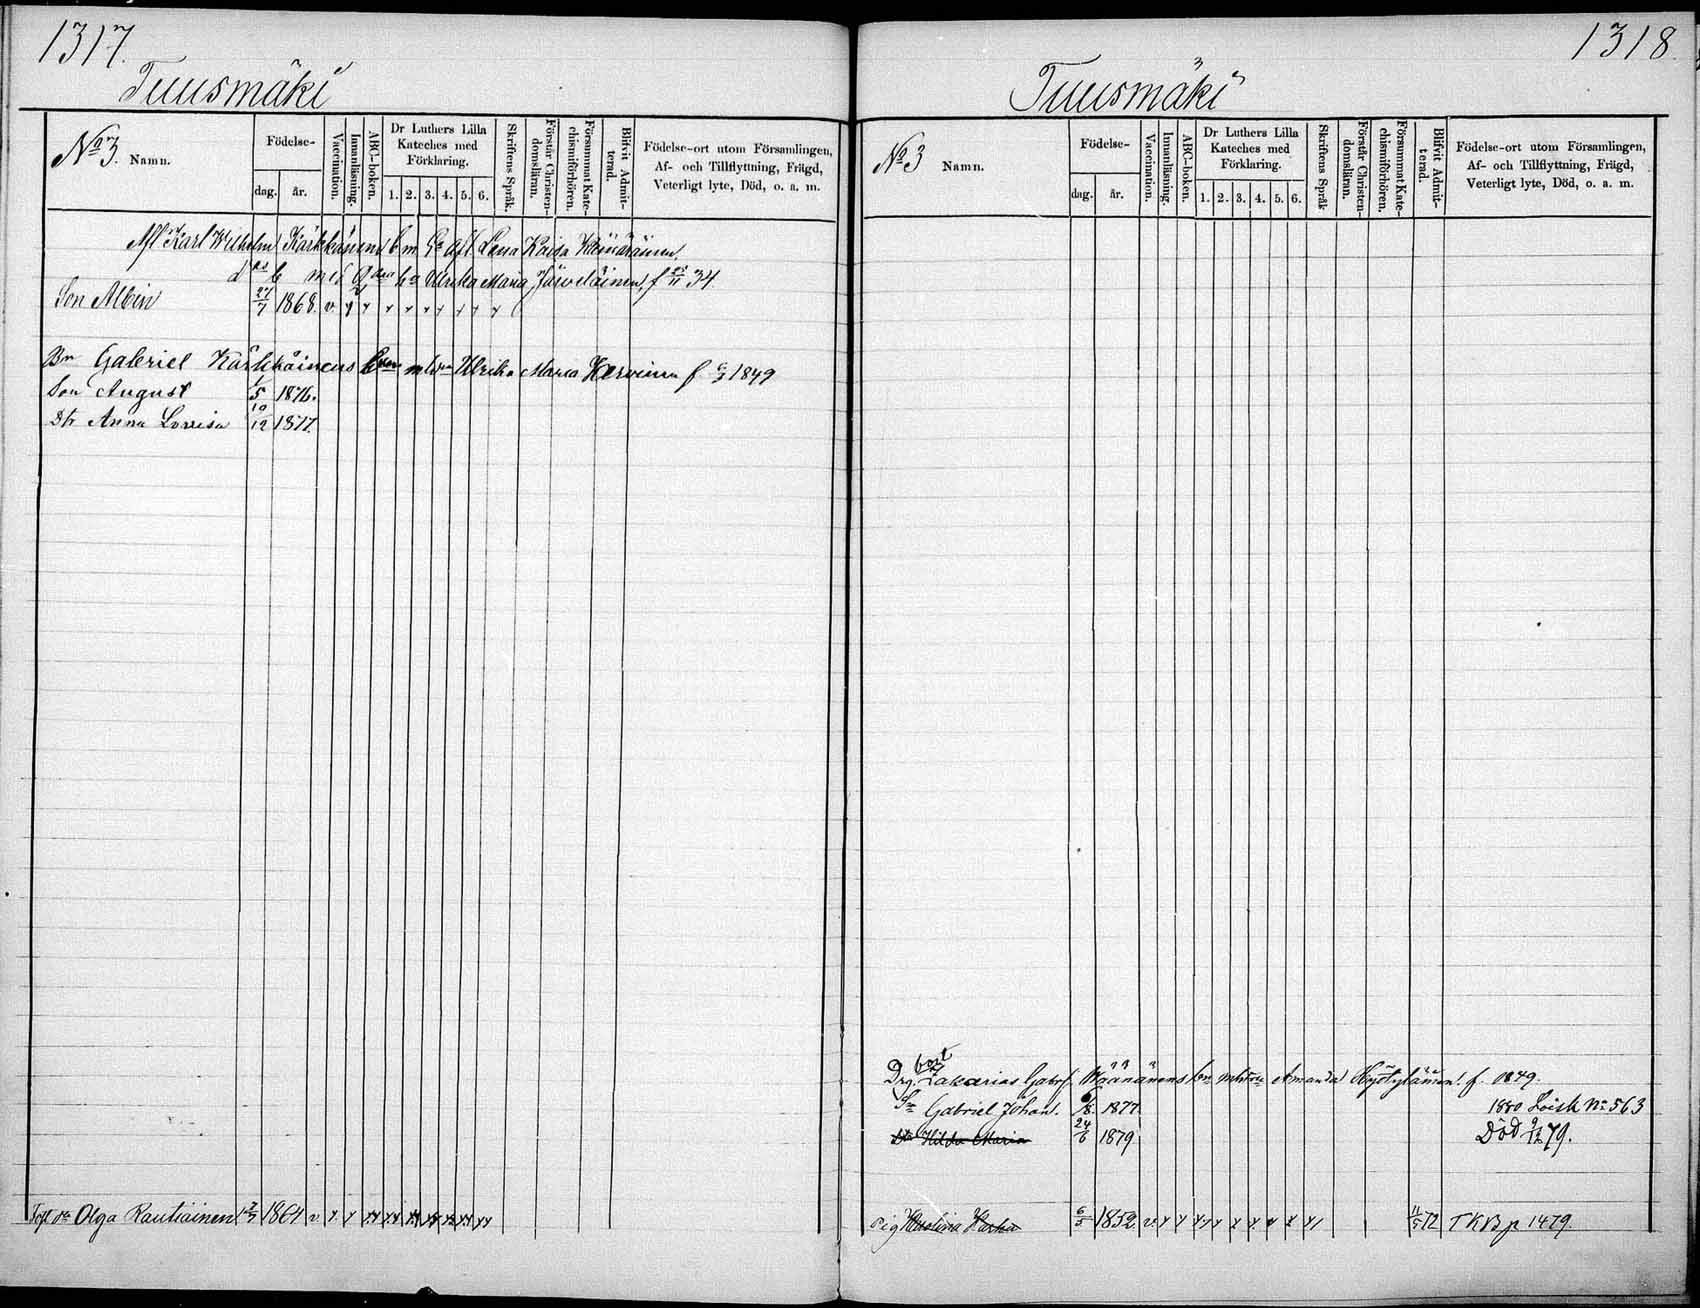 1317.
Tuusmäki
No 3. Namn.
Födelse-
dag. år.
Vaccination.
Innanläsning.
ABC-boken.
Dr Luthers Lilla Kateches med Förklaring.
1. 2. 3. 4. 5. 6.
Skriftens Språk.
Förstår Christen-domsläran.
Försummat Kate-chismiförhören.
Blifvit Admit-terad.
Födelse-ort utom Församlingen,
Af- och Tillflyttning, Frägd,
Veterligt lyte, Död, o. a. m.
Afl Karl Wilhelm Kärkkäinens b m afl Lena Kaisa
Ulrika Maria Järveläinen, f 34.
Son Albin 27/7 1868. v
Bn Gabriel Kärkkäinens Ulrika Maria f 1849
Son August 1/5 1876.
Dtr Anna Lovisa 10/12 1877.
Olga Rautiainen 1861 v
1318.
Tuusmäki
No 3 Namn.
Födelse-
dag. år.
Vaccination.
Innanläsning.
ABC-boken.
Dr Luthers Lilla Kateches med Förklaring.
1. 2. 3. 4. 5. 6.
Skriftens Språk
Förstår Christen-domsläran.
Försummat Kate-chismiförhören.
Blifvit Admit-terad.
Födelse-ort utom Församlingen,
Af- och Tillflyttning, Frägd,
Veterligt lyte, Död, o. a. m.
bort
Drg. Zakarias Gabrs. Wäänänens Amanda f. 1849.
Sn Gabriel Johan. 1877. 1880 Loisk No 563
Dtr Hilda Maria 24/6 1879 Död 79.
Pig 6/5 1852 v 11/5 72 TKB p 1479.